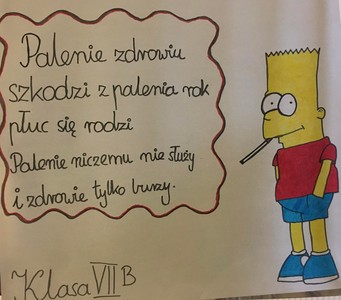 Palenie zdrowiu
szkodzi z palenia rak
płuc się rodzi
Palenie niczemu nie służy
i zdrowie tylko burzy.
Klasa VII B